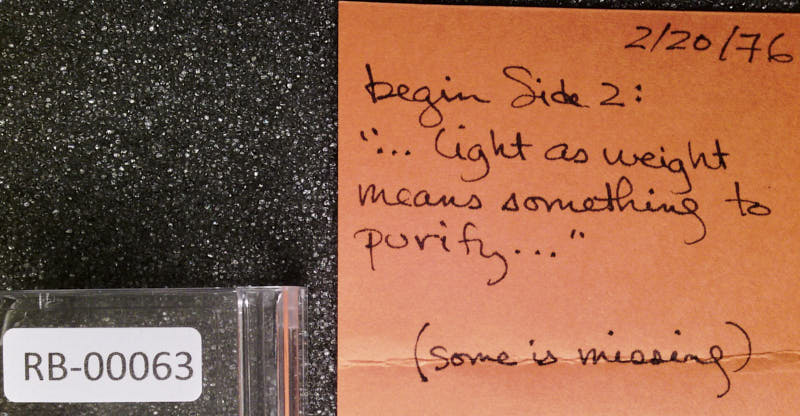 2/20/76
begin Side 2:
"... light as weight
means something to
purify..."
(some is missing)
RB-00063